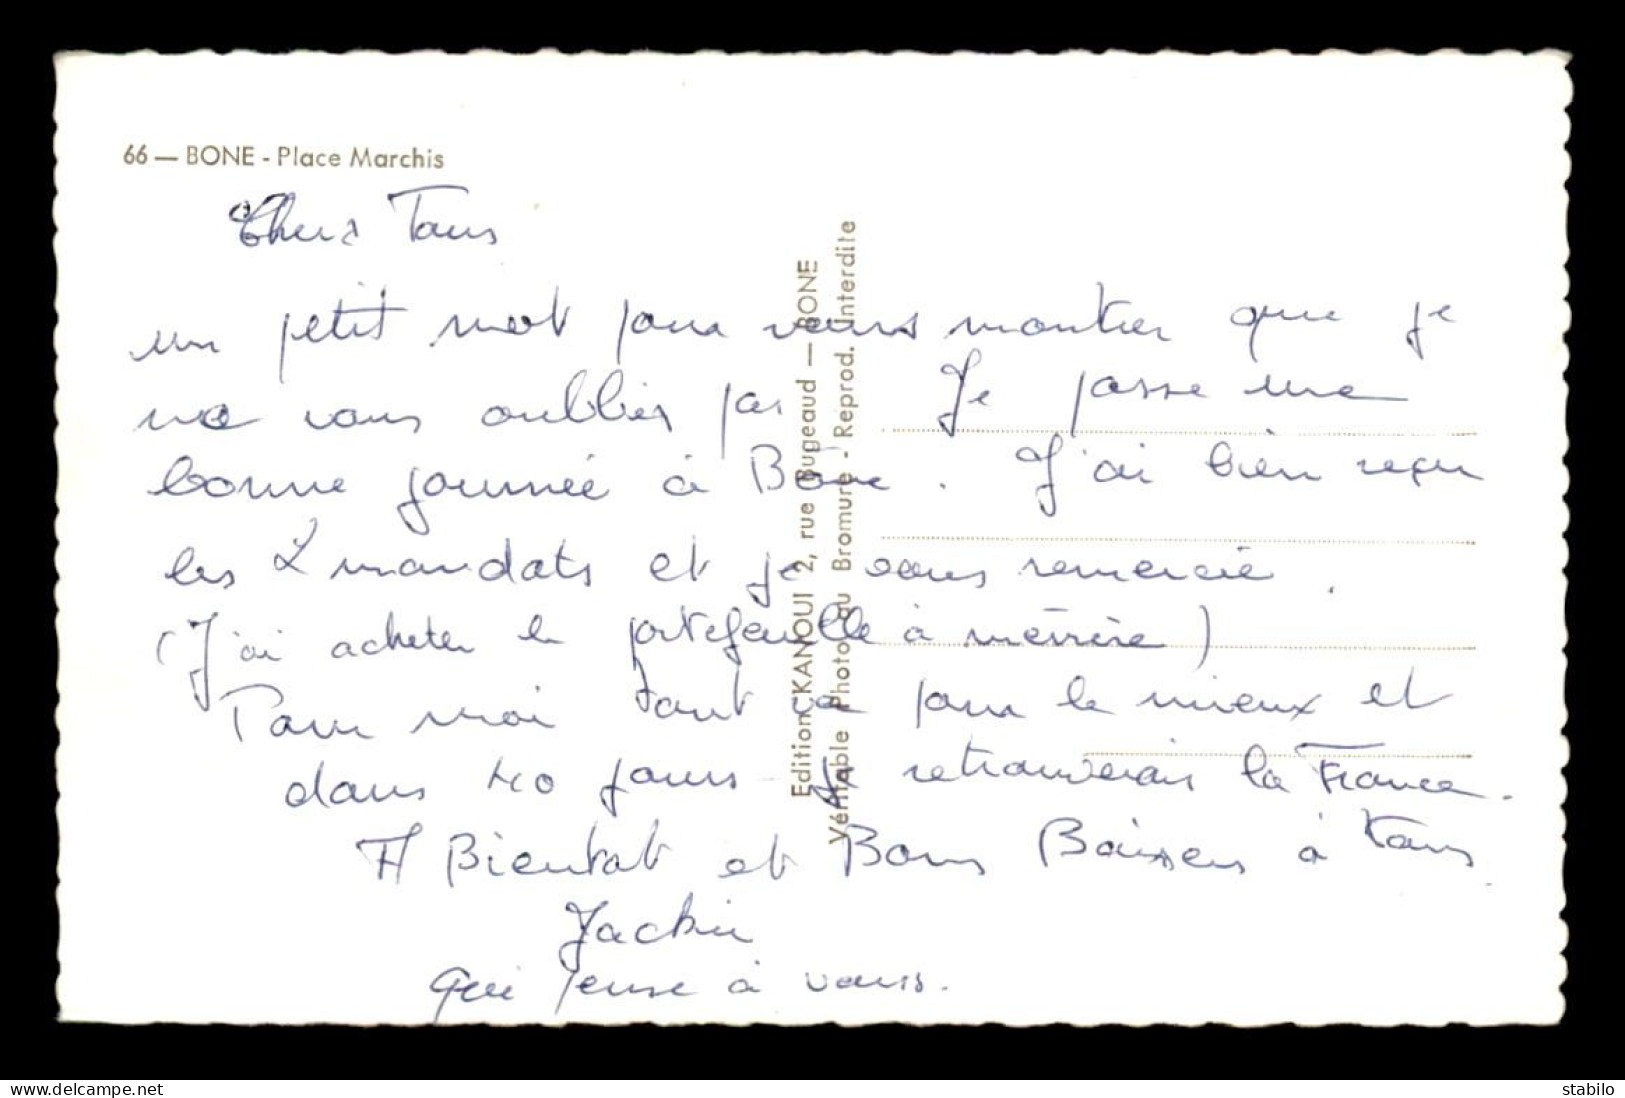 66 — BONE - Place Marchis
Chers Tous
un petit mot pour vous montrer que je
ne vous oublies pas Je passe une
bonne journée à Bône. J'ai bien reçu
les 2 mandats et je vous remercie.
(J'ai acheter le portefeuille à mémère)
Pour moi tout va pour le mieux et
dans 40 jours je retrouverais la France.
A Bientot et Bons Baisers à tous
Jackie
qui pense à vous.
Edition KANOUI 2, rue Bugeaud — BONE
Véritable Photo au Bromure - Reprod. Interdite
delcampe.net
stabilo